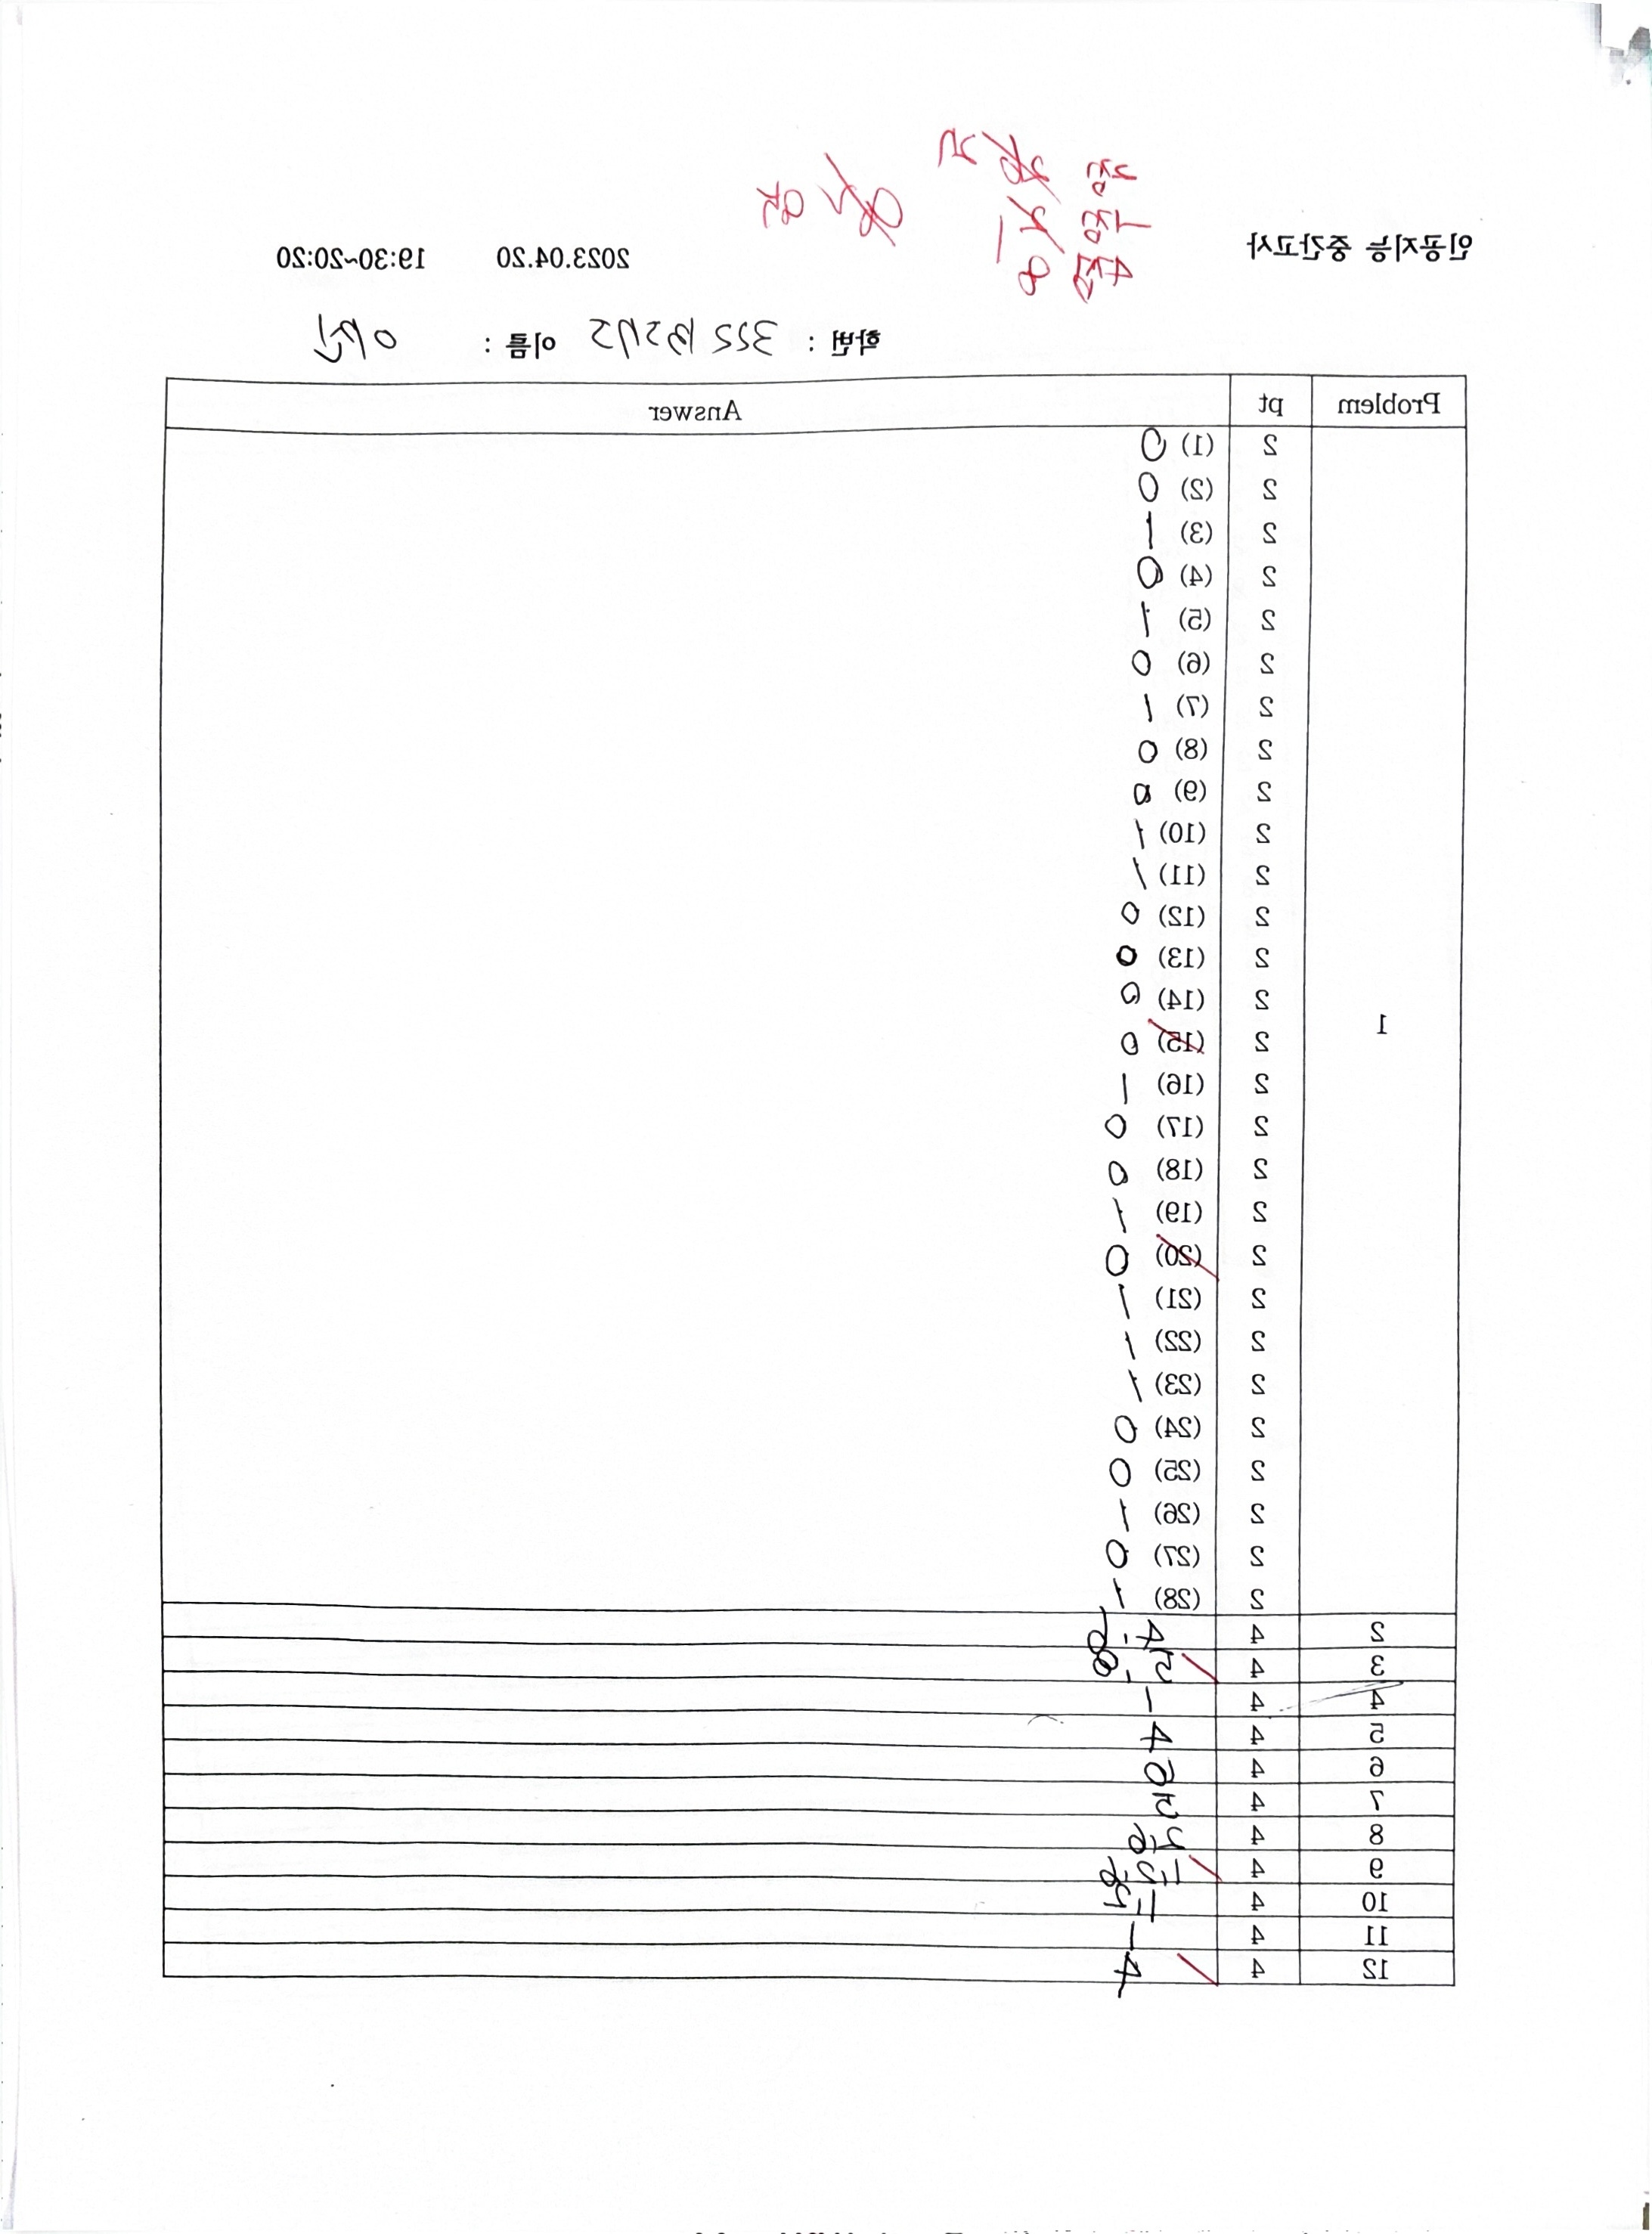 인공지능 중간고사 2023.04.20 19:30~20:20
학번 : 이름 :
Problem pt Answer
1
2 (1) 0
2 (2) 0
2 (3) 1
2 (4) 0
2 (5) 1
2 (6) 0
2 (7) 1
2 (8) 0
2 (9) 0
2 (10) 1
2 (11) 1
2 (12) 0
2 (13) 0
2 (14) 0
2 (15) 0
2 (16) 1
2 (17) 0
2 (18) 0
2 (19) 1
2 (20) 0
2 (21) 1
2 (22) 1
2 (23) 1
2 (24) 0
2 (25) 0
2 (26) 1
2 (27) 0
2 (28) 1
2 4
3 4
4 4
5 4
6 4
7 4
8 4
9 4
10 4
11 4
12 4